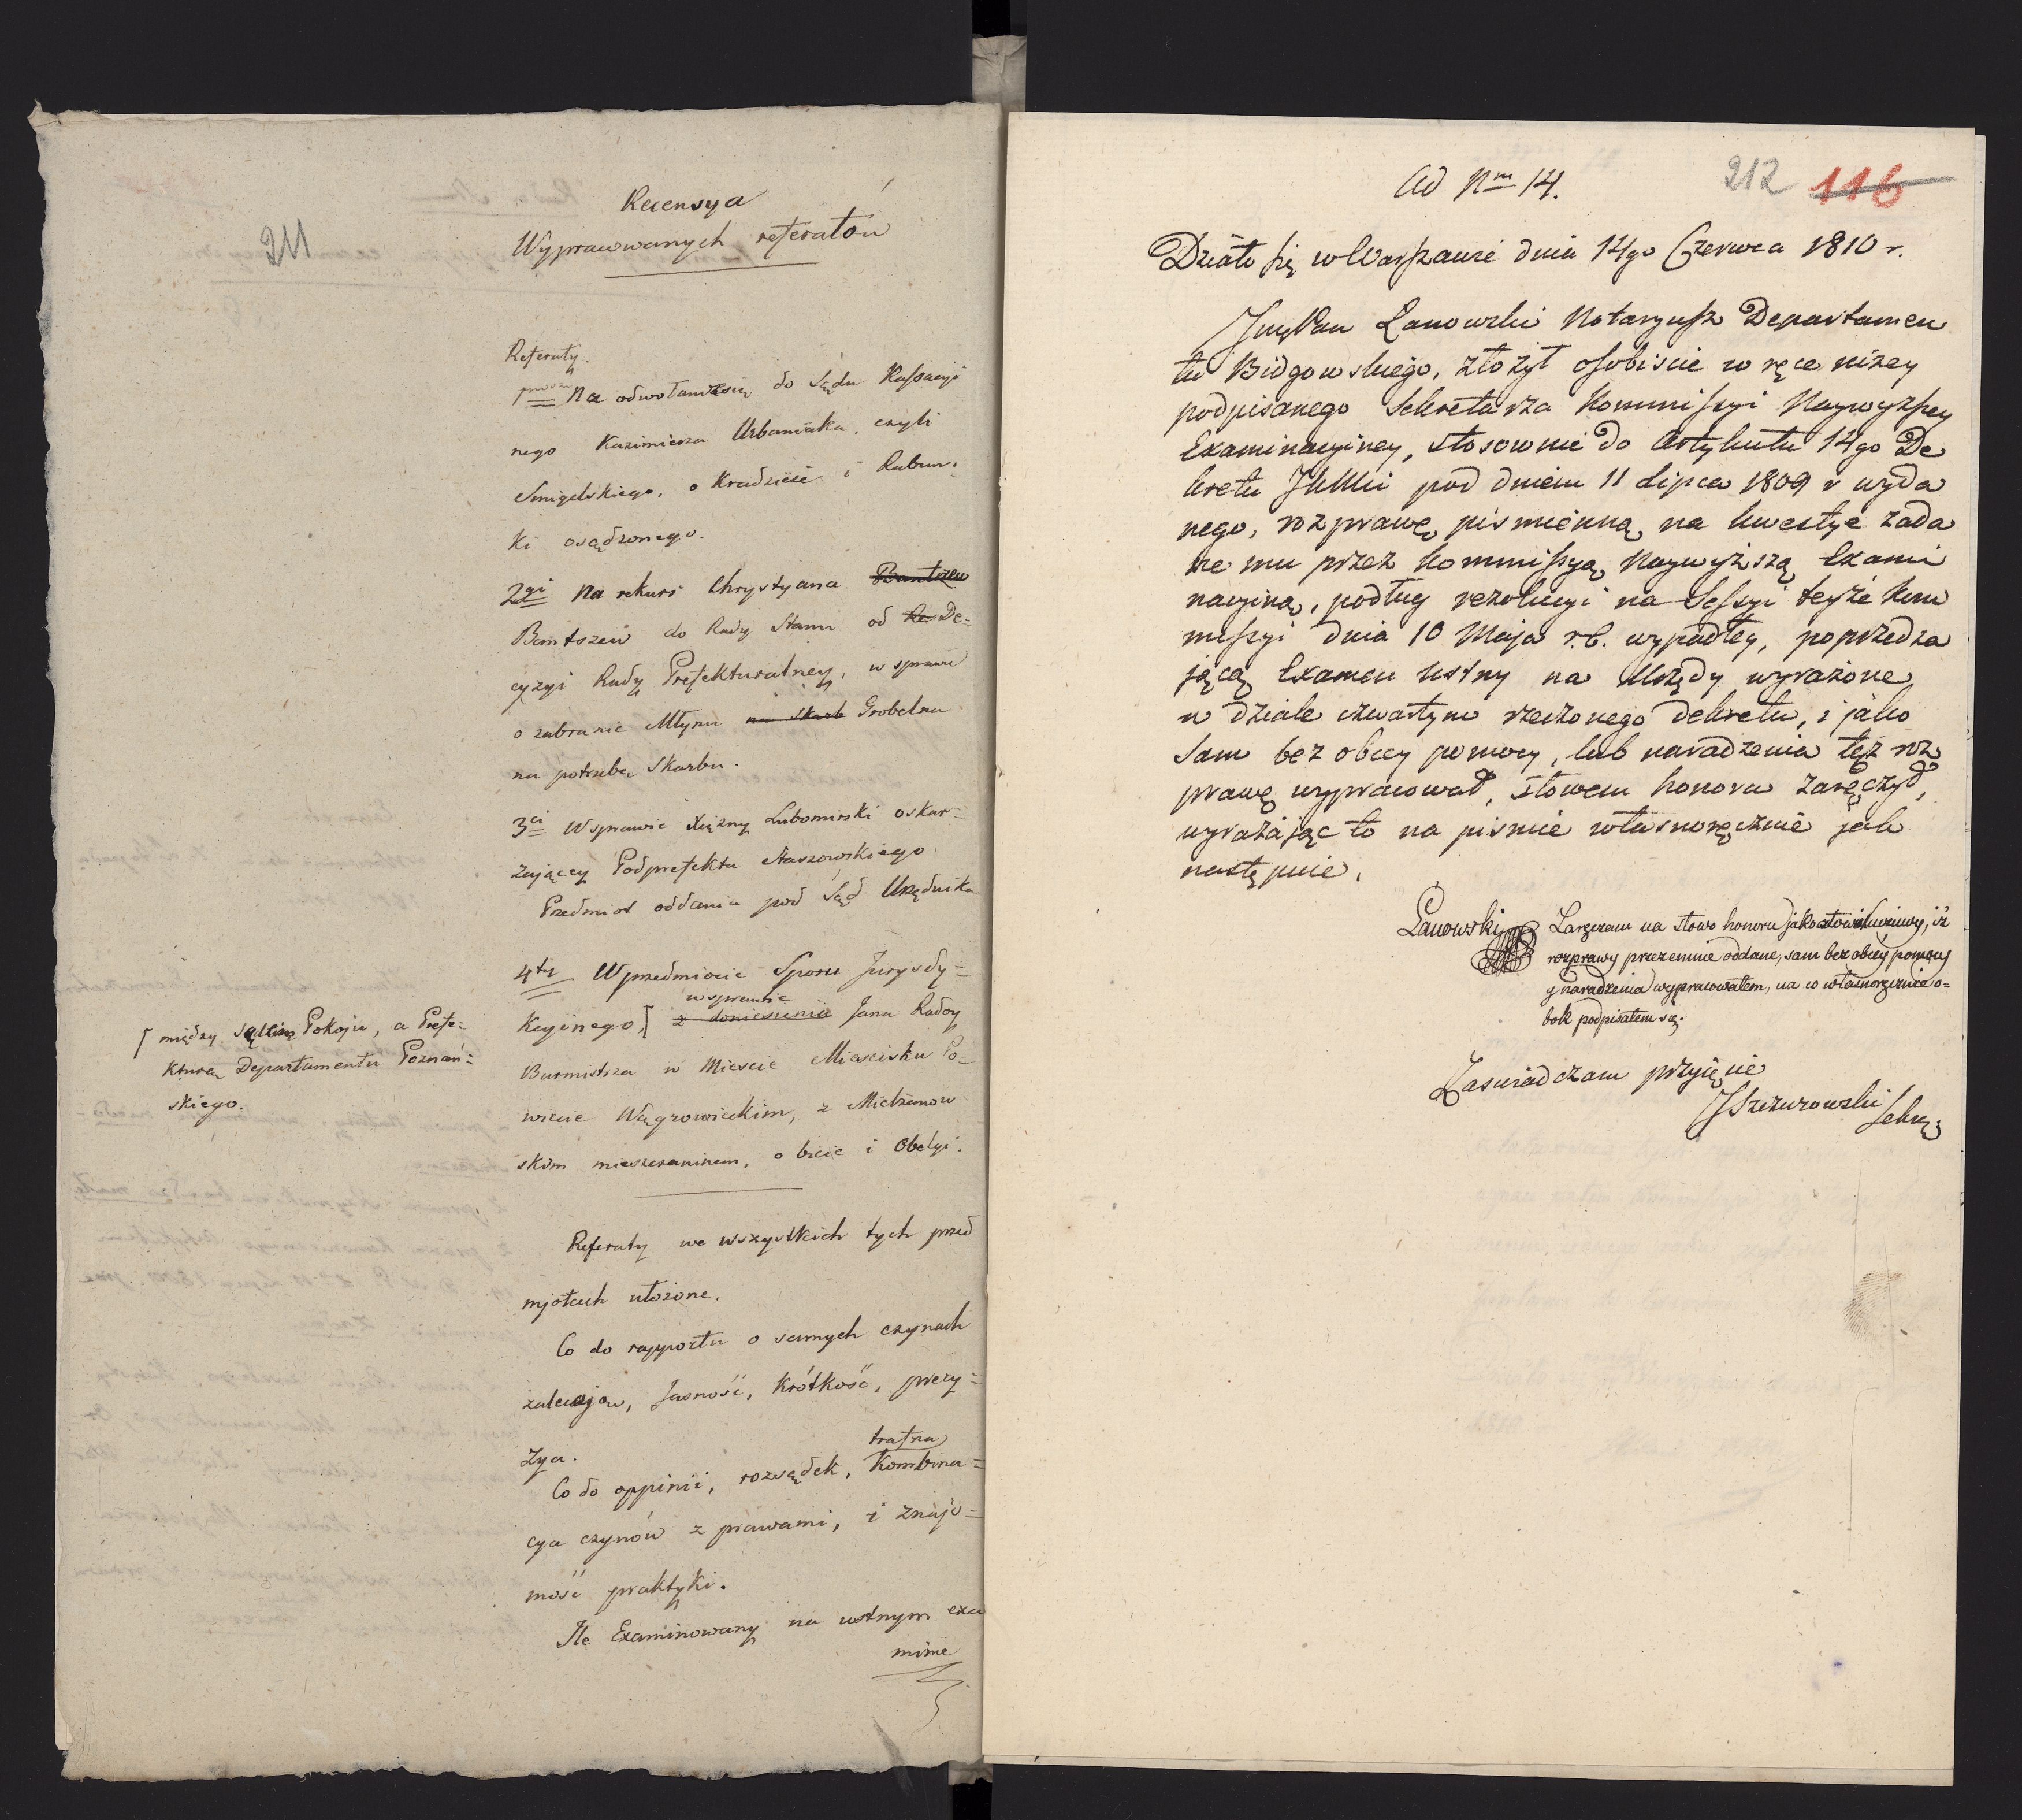 211
Recensya
Wypracowanych referatów
Referaty.
1mo Na odwołanie się do Sądu Kassacyi
nego Kazimierza Urbaniaka, czyli
Smigelskiego, o Kradzież i Rabun:
ki osądzonego.
2gi Na rekurs Chrystyana Bantszew
Bantszew do Rady Stanu od Re De=
cyzyi Rady Prefekturalney, w sprawie
o zabranie Młynu na Skarb Grobelnu
na potrzebę Skarbu.
3ci W sprawie Xiężny Lubomirski oskar=
żaiącey Podprefekta Staszowskiego
Przedmiot oddania pod Sąd Urzędnika
4ty W przedmiocie Sporu Jurysdy=
w sprawie
kcyinego,[ z doniesienia Jana Radoy
Burmistrza w Miescie Miescisku Po=
wiecie Wągrowieckim, z
skim mieszczaninem, o bicie i Obelgi.
[ między Sądem Pokoju, a Prefe:
kturą Departamentu Poznań:
skiego.
Referaty we wszystkich tych przed
mjotach ułożone.
Co do rapportu o samych czynach
zalecają, Jasność, Krótkość, precy=
zya.
trafna
Co do oppinii, rozsądek, Kombina=
cya czynów z prawami, i znajo=
mość praktyki.
Ile Examinowany na ustnym exa
minie
Ad Nm 14.
212 116
Działo się w Warszawie dnia 14go Czerwca 1810 r.
Jmć Pan Łanowski Notaryusz Departamen
tu Bidgowskiego, złożył osobiscie w ręce niżey
podpisanego Sekretarza Kommissyi Naywyższey
Examinacyiney, stosownie do Artykułu 14go De
kretu JKMci pod dniem 11 Lipca 1809 r wyda
nego, rozprawę pismienną na kwestye zada
ne mu przez Kommissyą Naywyższą Exami
nacyiną, podług rezolucyi na Sessyi teyże Kom
missyi dnia 10 Maja r.b. wypadłey, poprzedza
jącą Examen ustny na Urzędy wyrażone
w dziale czwartym rzeczonego dekretu, i jako
sam bez obcey pomocy, lub naradzenia tęż roz
prawę wypracował, słowem honoru zaręczył,
wyrażając to na pismie własnoręcznie jak
następuie.
Łanowski
Zaręczam na słowo honoru jako człowiek uczciwy, iż
rozprawy przezemnie oddane, sam bez obcey pomocy
y naradzenia wypracowałem, na co własnoręcznie o=
bok podpisałem się.
Zaswiadczam przyięcie
JSzczurowski
Sekrz.